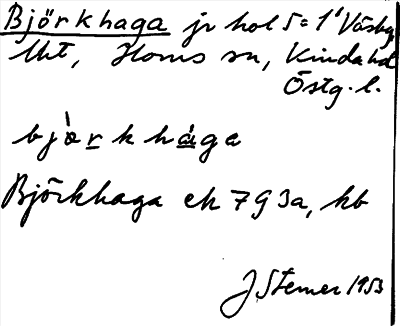 Björkhaga jr hol 5=1' Väsby
Uht, Horns sn, Kinda hd
Östg. l.
bjò̤rkhága
Björkhaga ek 7 G 3a, kb
J Stemer 1953